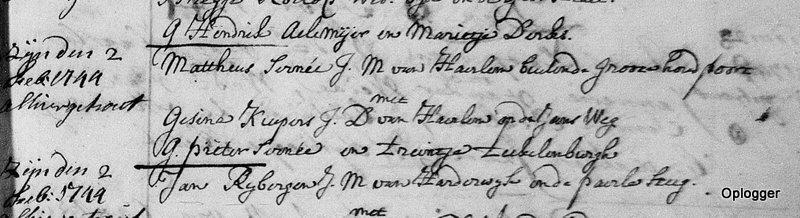 G Hendrik Aelemijer en Marietje Derks.
Zijnden 2
Feb: 1744
alhier getrout
Mattheus Sernée J. M van Haerlem buijten de Groote hout poort
met
Gesina Kuijpers J. D van Haerlem op de Jans Weg
G. Pieter Sernée en Treintje Eukelenburgh
Zijnden 2
Feb: 1744
Jan Rijbergen J. M van Harderwijk in de paerle steeg.
met
Oplogger